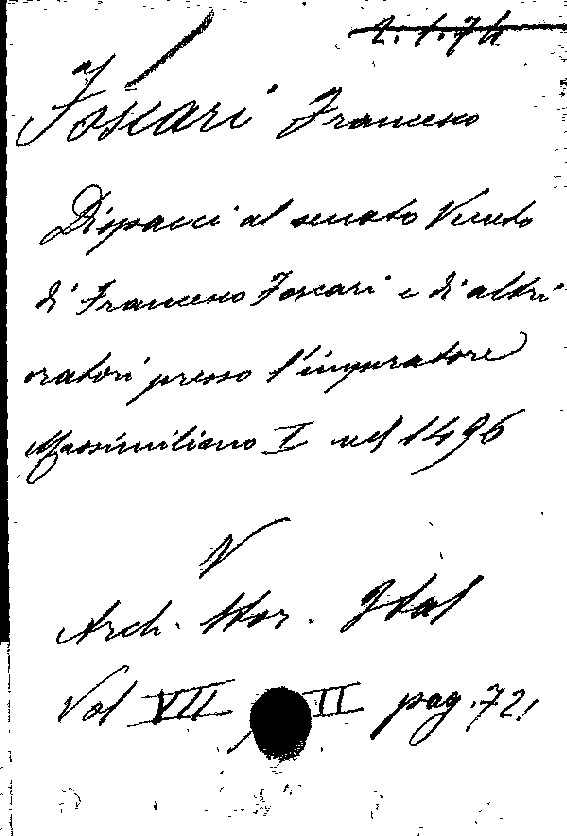 2.1.74
Foscari Francesco
Dispacci al senato Veneto
di Francesco Foscari e di altri
oratori presso l'imperatore
Massimiliano I nel 1496
V
Arch. Stor. Ital
Vol VII II pag. 721